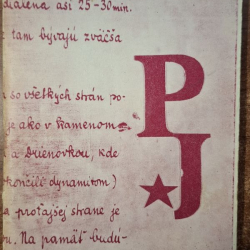 dialená asi 25-30 min.
e tam bývajú zväčša
so všetkých strán po-
je ako v Kamenom
a Drienovkou, kde
končili dynamitom)
protajšej strane je
Na pamäť budú-
P
J